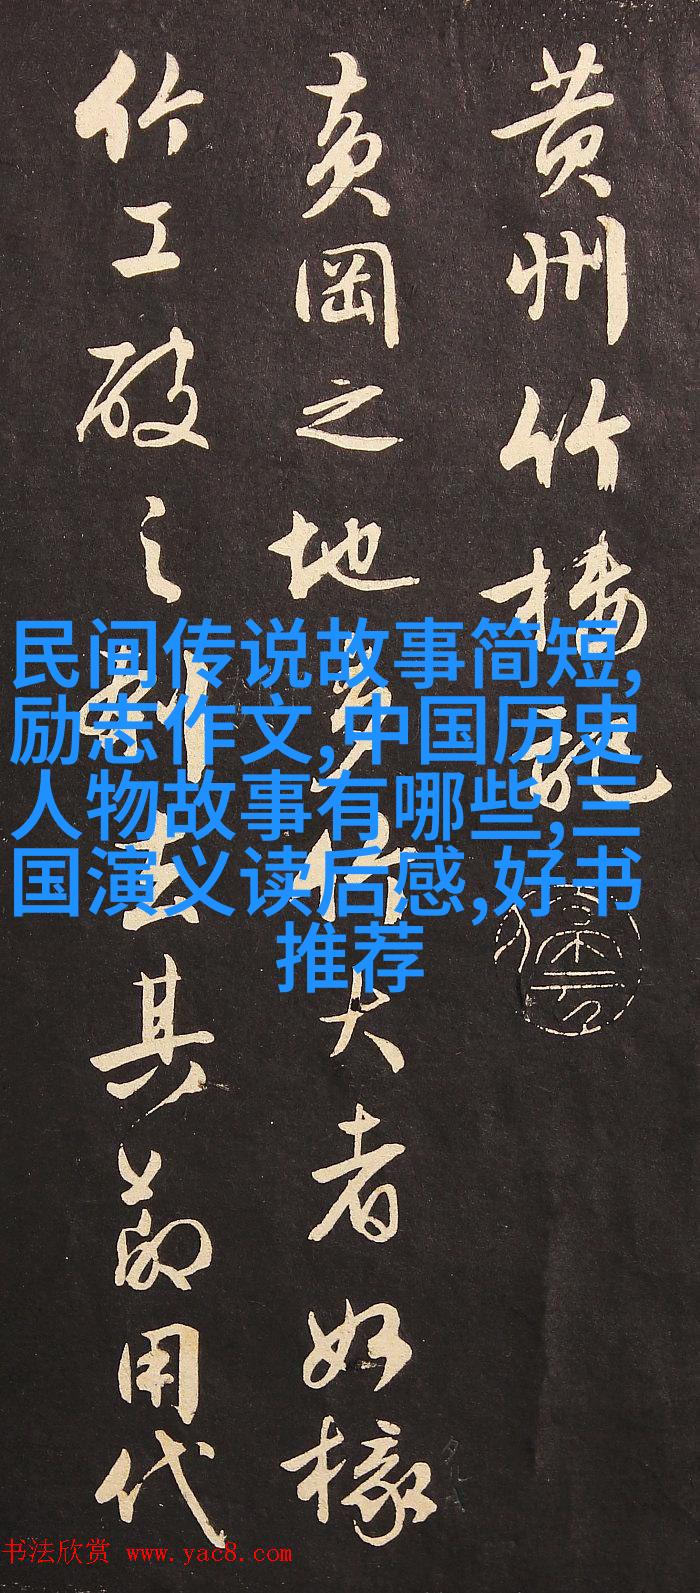 黄州竹楼記
黄岡之地多竹大者如椽
竹工破之刳去其節用代
民间传说故事简短,
励志作文,中国历史
人物故事有哪些,三
国演义读后感,好书
推荐
书法欣赏 www.yac8.com